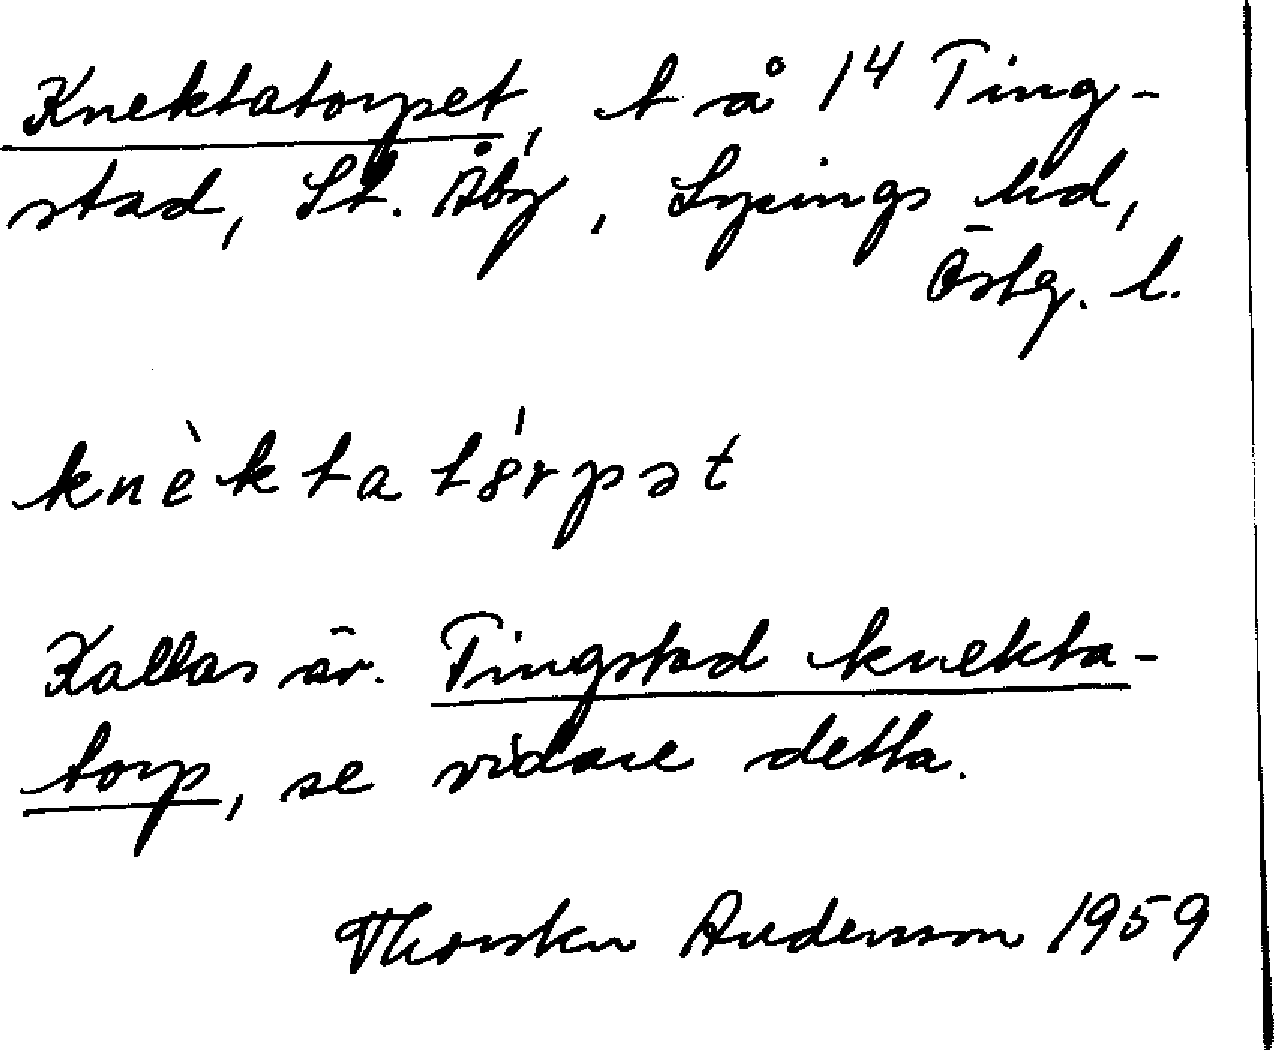 Knektatorpet, t å 14 Ting-
stad, St. Åby, Lysings hd,
Östg. l.
knèktatórpət
Kallas äv. Tingstad knekta-
torp, se vidare detta.
Thorsten Andersson 1959